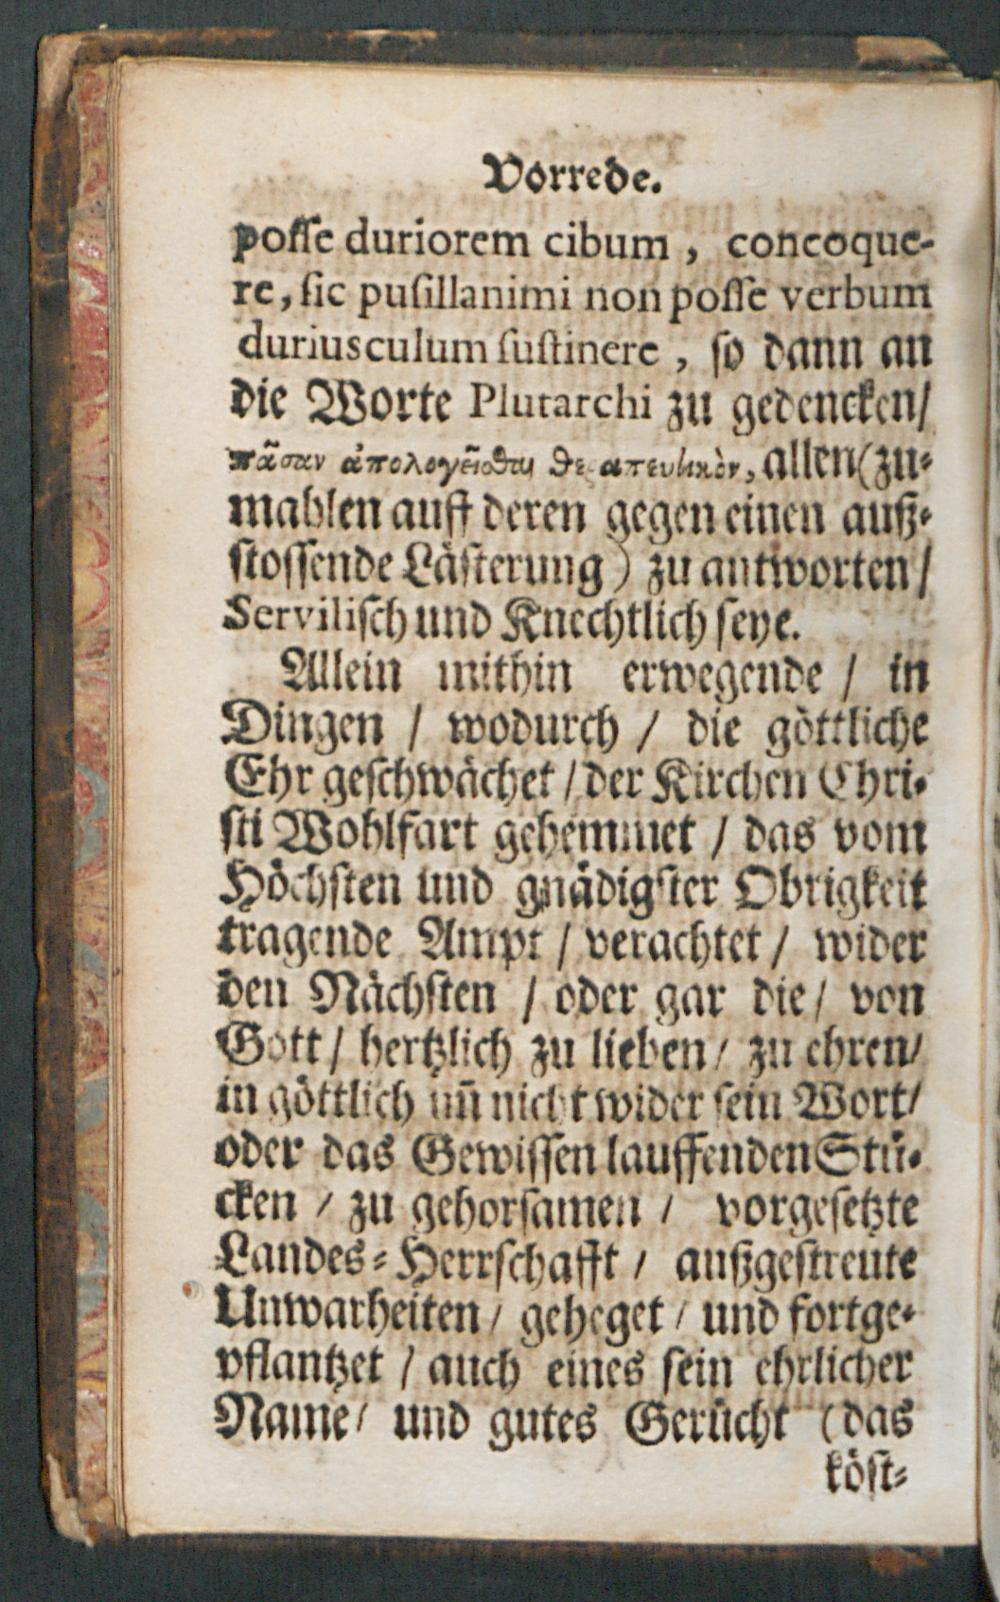 Vorrede.
posse duriorem cibum, concoque-
re, sic pusillanimi non posse verbum
duriusculum sustinere, so dann an
die Worte Plutarchi zu gedencken/
πᾶσαν ἀπολογεῖσθαι allen (zu-
mahlen auff deren gegen einen auß-
stossende Lästerung) zu antworten/
Servilisch und Knechtlich seye.
Allein mithin erwegende / in
Dingen / wodurch / die göttliche
Ehr geschwächet / der Kirchen Chri-
sti Wohlfart gehemmet / das vom
Höchsten und gnädigster Obrigkeit
tragende Ampt / verachtet / wider
den Nächsten / oder gar die / von
Gott / hertzlich zu lieben / zu ehren/
in göttlich uñ nicht wider sein Wort/
oder das Gewissen lauffenden Stü-
cken / zu gehorsamen / vorgesetzte
Landes-Herrschafft / außgestreute
Unwarheiten / geheget / und fortge-
pflantzet / auch eines sein ehrlicher
Name / und gutes Gerücht (das
köst-